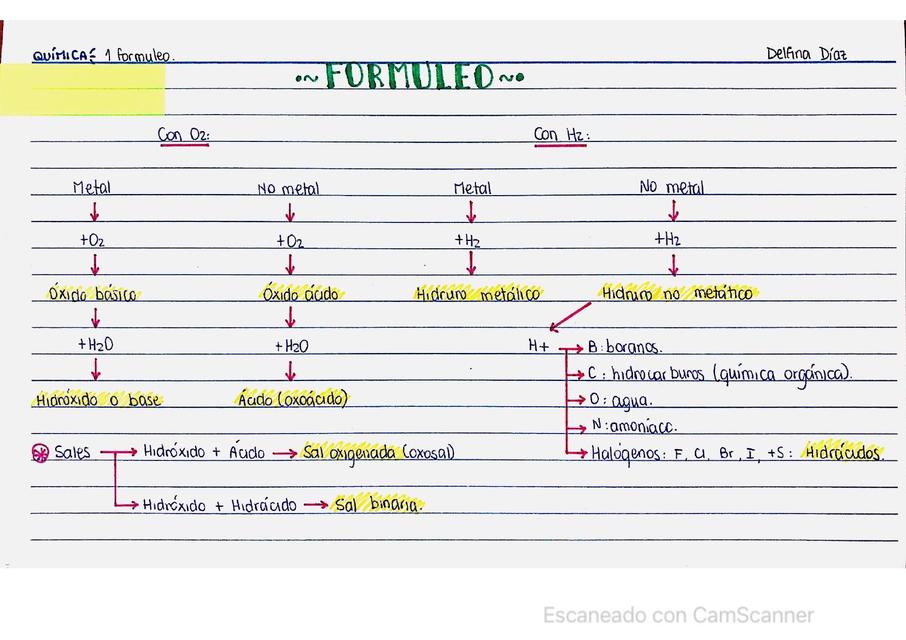 QUÍMICA: 1 formuleo.
Delfina Díaz
FORMULEO
Con O2:
Con H2:
Metal
No metal
Metal
No metal
+O2
+O2
+H2
+H2
Óxido básico
Óxido ácido
Hidruro metálico
Hidruro no metático
+H2O
+H2O
H+
B: boranos.
C: hidrocarburos (química orgánica).
Hidróxido o base
Ácido (oxoácido)
O: agua.
N: amoníaco.
Sales
Hidróxido + Ácido
Sal oxigenada (oxosal)
Halógenos: F, Cl, Br, I, +S: Hidrácidos.
Hidróxido + Hidrácido
Sal binaria.
Escaneado con CamScanner